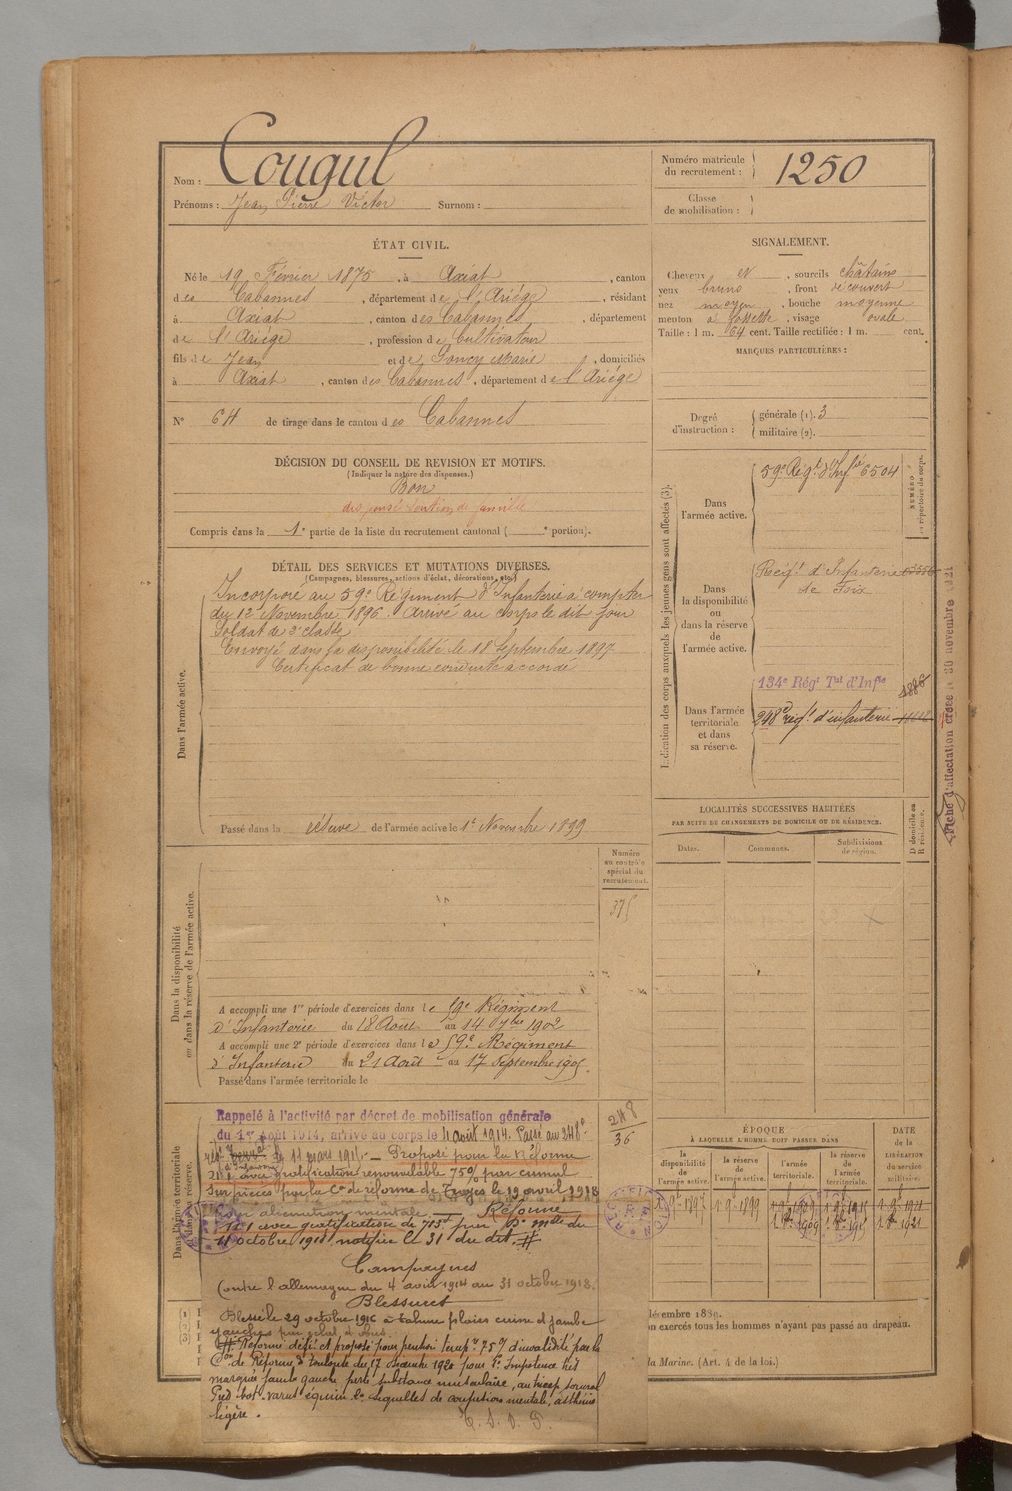 Nom : Cougul
Prénoms : Jean Pierre Victor Surnom :
Numéro matricule du recrutement : 1250
Classe de mobilisation :
ÉTAT CIVIL.
Né le 19 Février 1875, à Axiat, canton
des Cabannes, département de l'Ariége, résidant
à Axiat, canton des Cabannes, département
de l'Ariége, profession de Cultivateur
fils de Jean et de Goncy Marie, domiciliés
à Axiat, canton des Cabannes, département de l'Ariége
N° 64 de tirage dans le canton des Cabannes
SIGNALEMENT.
Cheveux et, sourcils châtains
yeux bruns, front découvert
nez moyen, bouche moyenne
menton à fossette, visage ovale
Taille : 1 m. 64 cent. Taille rectifiée : 1 m. cent.
MARQUES PARTICULIÈRES :
Degré d'instruction : générale (1). 3
militaire (2).
DÉCISION DU CONSEIL DE REVISION ET MOTIFS.
(Indiquer la nature des dispenses.)
Bon
dispensé soutien de famille
Compris dans la 1e partie de la liste du recrutement cantonal ( e portion).
DÉTAIL DES SERVICES ET MUTATIONS DIVERSES.
(Campagnes, blessures, actions d'éclat, décorations, etc.)
Dans l'armée active.
Incorporé au 59e Régiment d'Infanterie à compter
du 12 Novembre 1896. Arrivé au corps le dit jour
Soldat de 2e classe
Envoyé dans la disponibilité le 18 Septembre 1897
Certificat de bonne conduite accordé
Passé dans la réserve de l'armée active le 1er Novembre 1899
Indication des corps auxquels les jeunes gens sont affectés (3).
NUMÉRO au répertoire du corps.
Dans l'armée active.
59e Régt d'Infie 6504
Dans la disponibilité ou dans la réserve de l'armée active.
Régt d'Infanterie
de Foix
Dans l'armée territoriale et dans sa réserve.
134e Régt Tal d'Infie
248e régt d'infanterie
Fiche d'affectation créée le 30 novembre 1921
LOCALITÉS SUCCESSIVES HABITÉES
PAR SUITE DE CHANGEMENTS DE DOMICILE OU DE RÉSIDENCE.
Dates. Communes. Subdivisions de région. D domicile ou R résidence.
Numéro au contrôle spécial du recrutement.
375
Dans la disponibilité ou dans la réserve de l'armée active.
A accompli une 1re période d'exercices dans le 59e Régiment
d'Infanterie du 18 Août au 14 7bre 1902
A accompli une 2e période d'exercices dans le 59e Régiment
d'Infanterie du 21 Août au 17 Septembre 1905
Passé dans l'armée territoriale le
Dans l'armée territoriale et dans sa réserve.
248
36
Rappelé à l'activité par décret de mobilisation générale
du 1er Août 1914, arrivé au corps le 4 août 1914. Passé au 248e
régt d'Infanterie le 11 mars 1915. — Proposé pour la Réforme
n° 1 avec gratification renouvelable 75% par cumul
sur pièces par la Con de réforme de Troyes le 19 avril 1918
aliénation mentale. — Réformé
n° 1 avec gratification de par Don mlle du
11 octobre 1918 notifiée le 31 du dit. #
Campagnes
Contre l'allemagne du 4 août 1914 au 31 octobre 1918.
Blessures
Blessé le 29 octobre 1916 à plaies cuisse et jambe
gauches par éclat d'obus.
# Réformé défif et proposé pour pension tempre 75% d'invalidité par la
Con de Réforme d'Toulouse du 17 Décembre 1920 pour 1° Impotence très
marquée jambe gauche perte substance musculaire, au bicep
Pied bot varus équin 2° Séquelles de confusion mentale, asthénie
légère.
ÉPOQUE
À LAQUELLE L'HOMME DOIT PASSER DANS
DATE de la LIBÉRATION du service militaire.
la disponibilité de l'armée active. la réserve de l'armée active. l'armée territoriale. la réserve de l'armée territoriale.
1 9e 1897 1 9e 1899 1 9e 1909 1 9e 1915 1 9e 1921
1 8bre 1909 1 8bre 1915 1 8bre 1921
décembre 1889.
n exercés tous les hommes n'ayant pas passé au drapeau.
la Marine. (Art. 4 de la loi.)